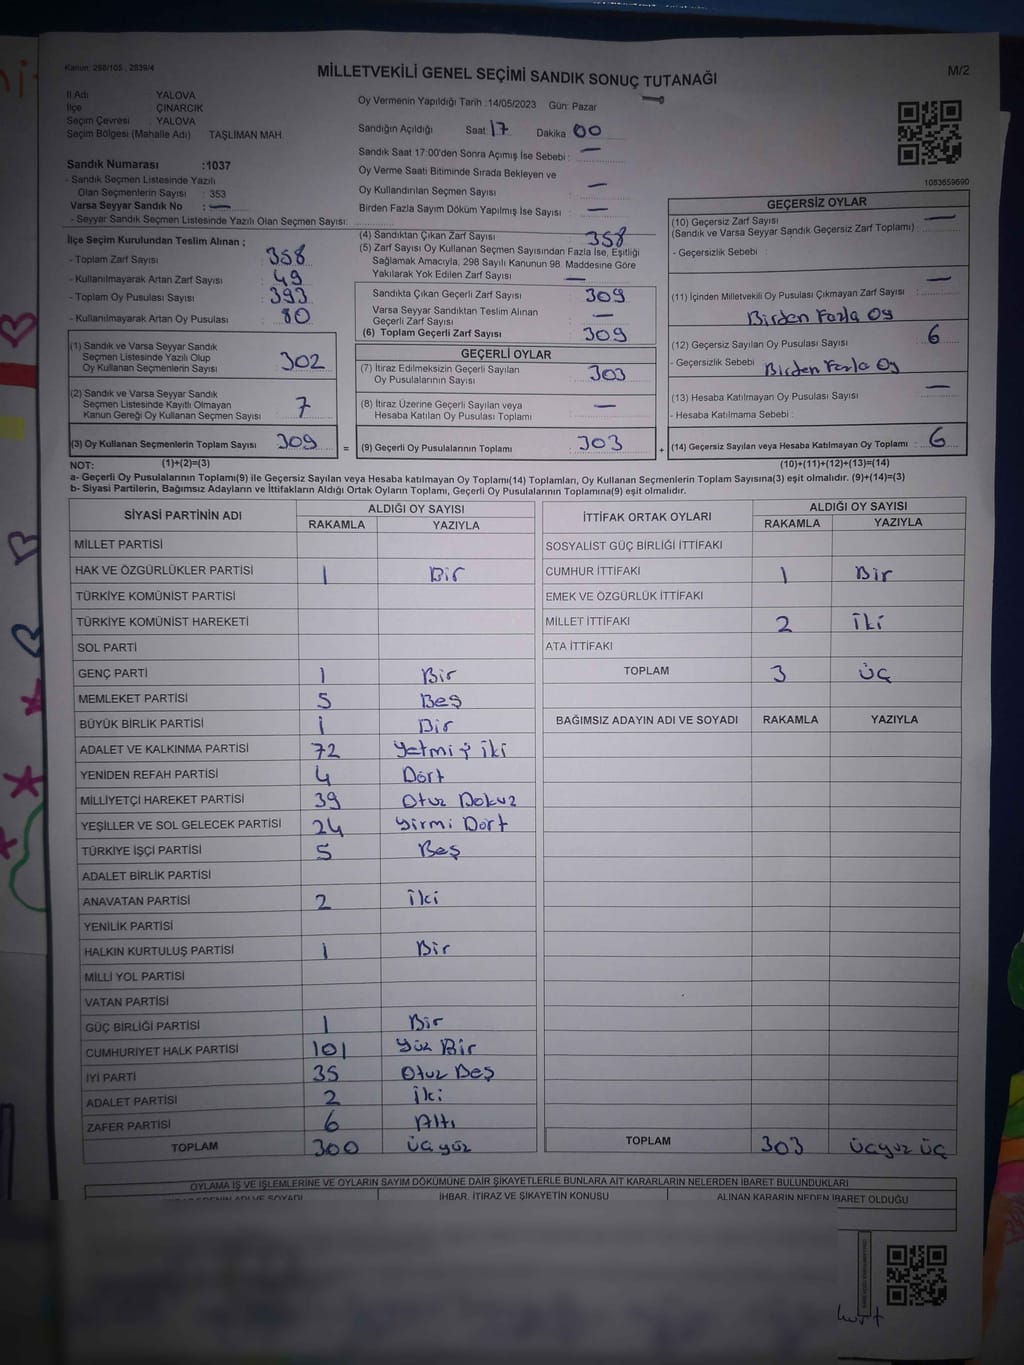 Kanun: 298/105 , 2839/4
MİLLETVEKİLİ GENEL SEÇİMİ SANDIK SONUÇ TUTANAĞI
M/2
İl Adı : YALOVA
İlçe : ÇINARCIK
Seçim Çevresi : YALOVA
Seçim Bölgesi (Mahalle Adı) TAŞLIMAN MAH.
Oy Vermenin Yapıldığı Tarih :14/05/2023 Gün: Pazar
Sandığın Açıldığı Saat: 17 Dakika 00
Sandık Saat 17:00'den Sonra Açımış İse Sebebi : —
Oy Verme Saati Bitiminde Sırada Bekleyen ve
Oy Kullandırılan Seçmen Sayısı : —
Birden Fazla Sayım Döküm Yapılmış İse Sayısı : —
Sandık Numarası :1037
- Sandık Seçmen Listesinde Yazılı
Olan Seçmenlerin Sayısı : 353
Varsa Seyyar Sandık No : —
- Seyyar Sandık Seçmen Listesinde Yazılı Olan Seçmen Sayısı:
1083659690
İlçe Seçim Kurulundan Teslim Alınan ;
- Toplam Zarf Sayısı : 358
- Kullanılmayarak Artan Zarf Sayısı : 49
- Toplam Oy Pusulası Sayısı : 393
- Kullanılmayarak Artan Oy Pusulası : 80
(1) Sandık ve Varsa Seyyar Sandık
Seçmen Listesinde Yazılı Olup
Oy Kullanan Seçmenlerin Sayısı : 302
(2) Sandık ve Varsa Seyyar Sandık
Seçmen Listesinde Kayıtlı Olmayan
Kanun Gereği Oy Kullanan Seçmen Sayısı : 7
(3) Oy Kullanan Seçmenlerin Toplam Sayısı : 309
(4) Sandıktan Çıkan Zarf Sayısı : 358
(5) Zarf Sayısı Oy Kullanan Seçmen Sayısından Fazla İse, Eşitliği
Sağlamak Amacıyla, 298 Sayılı Kanunun 98. Maddesine Göre
Yakılarak Yok Edilen Zarf Sayısı : —
Sandıkta Çıkan Geçerli Zarf Sayısı : 309
Varsa Seyyar Sandıktan Teslim Alınan
Geçerli Zarf Sayısı : —
(6) Toplam Geçerli Zarf Sayısı : 309
GEÇERLİ OYLAR
(7) İtiraz Edilmeksizin Geçerli Sayılan
Oy Pusulalarının Sayısı : 303
(8) İtiraz Üzerine Geçerli Sayılan veya
Hesaba Katılan Oy Pusulası Toplamı : —
= (9) Geçerli Oy Pusulalarının Toplamı : 303
GEÇERSİZ OYLAR
(10) Geçersiz Zarf Sayısı
(Sandık ve Varsa Seyyar Sandık Geçersiz Zarf Toplamı) : —
- Geçersizlik Sebebi :
(11) İçinden Milletvekili Oy Pusulası Çıkmayan Zarf Sayısı : —
Birden Fazla Oy
(12) Geçersiz Sayılan Oy Pusulası Sayısı : 6
- Geçersizlik Sebebi : Birden Fazla Oy
(13) Hesaba Katılmayan Oy Pusulası Sayısı : —
- Hesaba Katılmama Sebebi :
+ (14) Geçersiz Sayılan veya Hesaba Katılmayan Oy Toplamı : 6
NOT: (1)+(2)=(3)
(10)+(11)+(12)+(13)=(14)
a- Geçerli Oy Pusulalarının Toplamı(9) ile Geçersiz Sayılan veya Hesaba katılmayan Oy Toplamı(14) Toplamları, Oy Kullanan Seçmenlerin Toplam Sayısına(3) eşit olmalıdır. (9)+(14)=(3)
b- Siyasi Partilerin, Bağımsız Adayların ve İttifakların Aldığı Ortak Oyların Toplamı, Geçerli Oy Pusulalarının Toplamına(9) eşit olmalıdır.
SİYASİ PARTİNİN ADI ALDIĞI OY SAYISI
RAKAMLA YAZIYLA
MİLLET PARTİSİ
HAK VE ÖZGÜRLÜKLER PARTİSİ 1 Bir
TÜRKİYE KOMÜNİST PARTİSİ
TÜRKİYE KOMÜNİST HAREKETİ
SOL PARTİ
GENÇ PARTİ 1 Bir
MEMLEKET PARTİSİ 5 Beş
BÜYÜK BİRLİK PARTİSİ 1 Bir
ADALET VE KALKINMA PARTİSİ 72 Yetmiş iki
YENİDEN REFAH PARTİSİ 4 Dört
MİLLİYETÇİ HAREKET PARTİSİ 39 Otuz Dokuz
YEŞİLLER VE SOL GELECEK PARTİSİ 24 Yirmi Dört
TÜRKİYE İŞÇİ PARTİSİ 5 Beş
ADALET BİRLİK PARTİSİ
ANAVATAN PARTİSİ 2 iki
YENİLİK PARTİSİ
HALKIN KURTULUŞ PARTİSİ 1 Bir
MİLLİ YOL PARTİSİ
VATAN PARTİSİ
GÜÇ BİRLİĞİ PARTİSİ 1 Bir
CUMHURİYET HALK PARTİSİ 101 Yüz Bir
İYİ PARTİ 35 Otuz Beş
ADALET PARTİSİ 2 İki
ZAFER PARTİSİ 6 Altı
TOPLAM 300 Üçyüz
İTTİFAK ORTAK OYLARI ALDIĞI OY SAYISI
RAKAMLA YAZIYLA
SOSYALİST GÜÇ BİRLİĞİ İTTİFAKI
CUMHUR İTTİFAKI 1 Bir
EMEK VE ÖZGÜRLÜK İTTİFAKI
MİLLET İTTİFAKI 2 İki
ATA İTTİFAKI
TOPLAM 3 Üç
BAĞIMSIZ ADAYIN ADI VE SOYADI RAKAMLA YAZIYLA
TOPLAM 303 Üçyüz üç
OYLAMA İŞ VE İŞLEMLERİNE VE OYLARIN SAYIM DÖKÜMÜNE DAİR ŞİKAYETLERLE BUNLARA AİT KARARLARIN NELERDEN İBARET BULUNDUKLARI
ADI VE SOYADI İHBAR, İTİRAZ VE ŞİKAYETİN KONUSU ALINAN KARARIN NEDEN İBARET OLDUĞU